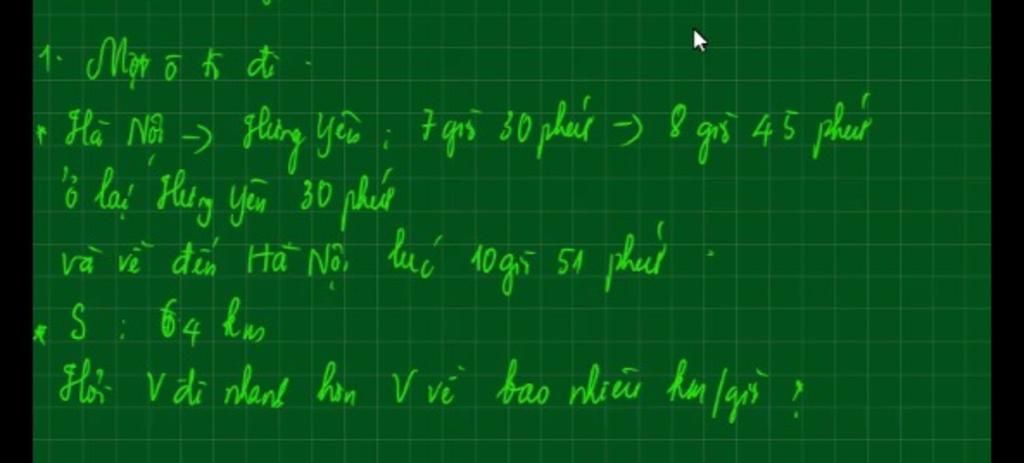 1. Một ô tô đi.
* Hà Nội -> Hưng Yên : 7 giờ 30 phút -> 8 giờ 45 phút
ở lại Hưng Yên 30 phút
và về đến Hà Nội lúc 10 giờ 51 phút.
* S : 64 km
Hỏi V đi nhanh hơn V về bao nhiêu km/giờ ?